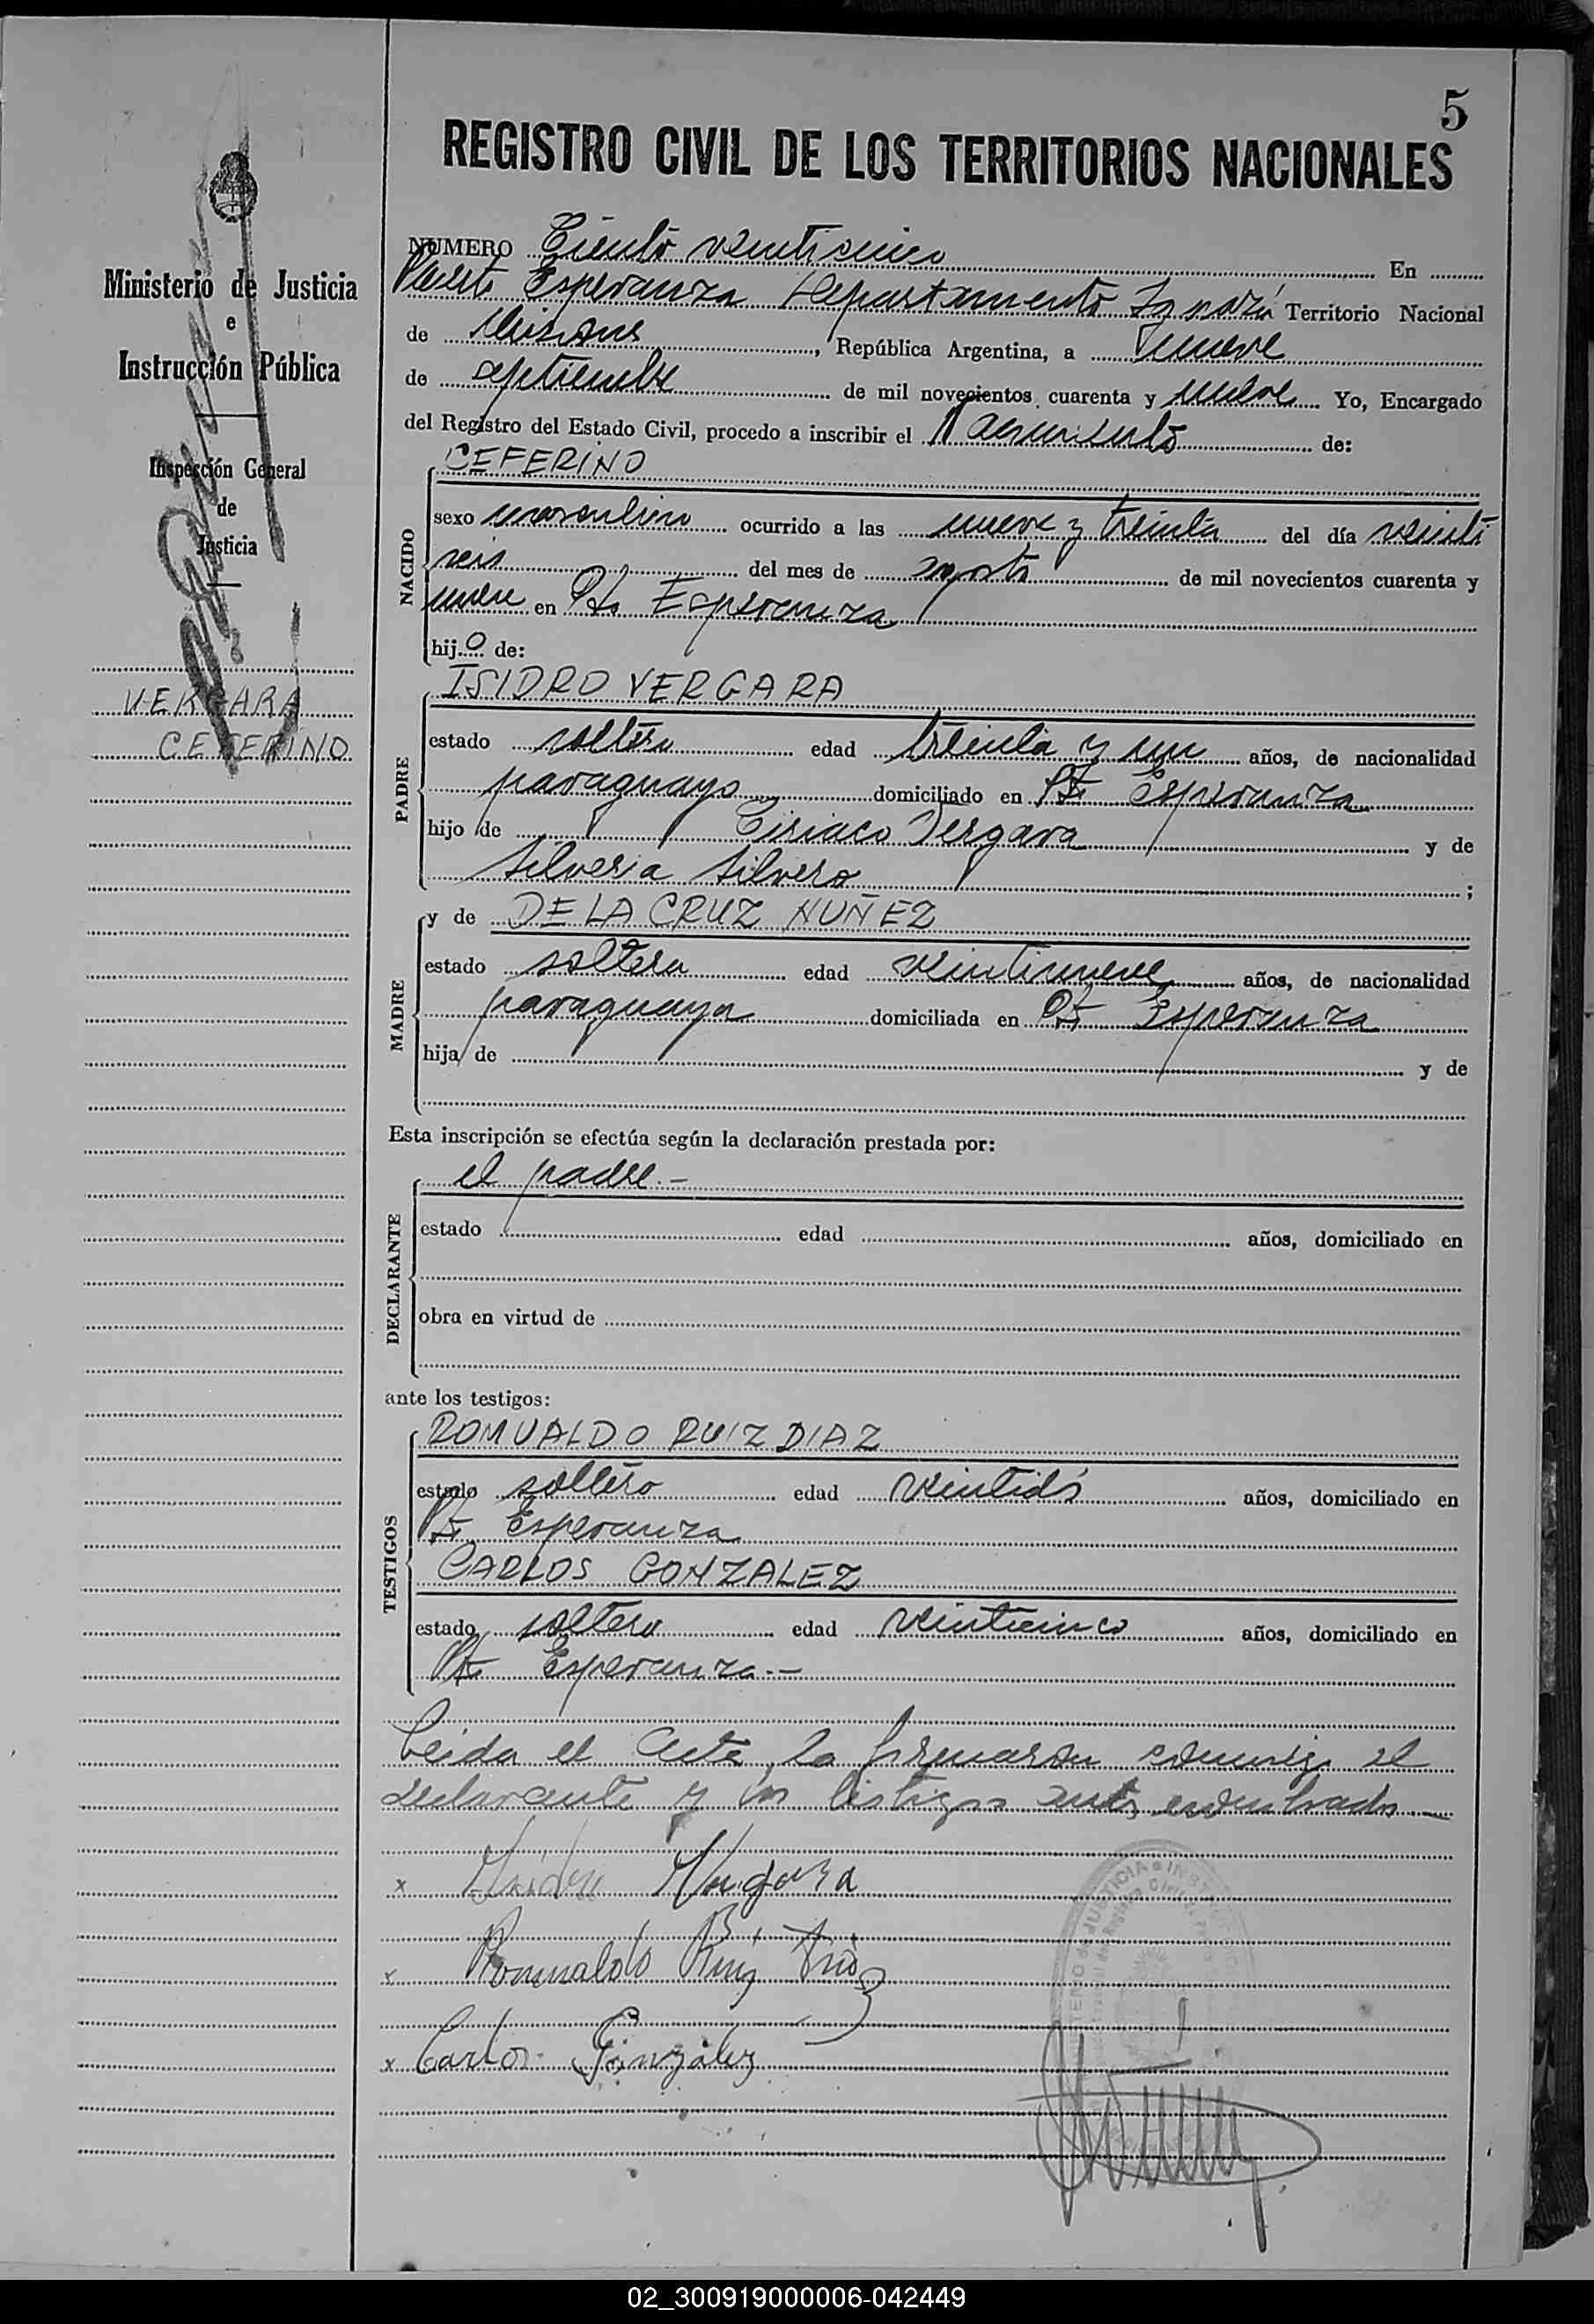 5
REGISTRO CIVIL DE LOS TERRITORIOS NACIONALES
Ministerio de Justicia
e
Instrucción Pública
Inspección General
de
Justicia
VERGARA
CEFERINO
NUMERO Ciento veinticinco En
Puerto Esperanza Departamento Iguazú Territorio Nacional
de Misiones, República Argentina, a nueve
de septiembre de mil novecientos cuarenta y nueve Yo, Encargado
del Registro del Estado Civil, procedo a inscribir el Nacimiento de:
CEFERINO
NACIDO
sexo masculino ocurrido a las nueve y treinta del día veinti
seis del mes de agosto de mil novecientos cuarenta y
nueve en Pto Esperanza
hijo de:
ISIDRO VERGARA
PADRE
estado soltero edad treinta y un años, de nacionalidad
paraguayo domiciliado en Pto Esperanza
hijo de Ciriaco Vergara y de
Silveria Silvero ;
y de DE LA CRUZ NUÑEZ
MADRE
estado soltera edad veintinueve años, de nacionalidad
paraguaya domiciliada en Pto Esperanza
hija de y de
Esta inscripción se efectúa según la declaración prestada por:
el padre.-
DECLARANTE
estado edad años, domiciliado en
obra en virtud de
ante los testigos:
ROMUALDO RUIZ DIAZ
TESTIGOS
estado soltero edad veintidós años, domiciliado en
Pto Esperanza
CARLOS GONZALEZ
estado soltero edad veinticinco años, domiciliado en
Pto Esperanza.-
Leida el Acta, la firmaron conmigo el
declarante y los testigos antes nombrados.—
x Isidro Vergara
x Romualdo Ruiz Diaz
x Carlos González
02_300919000006-042449